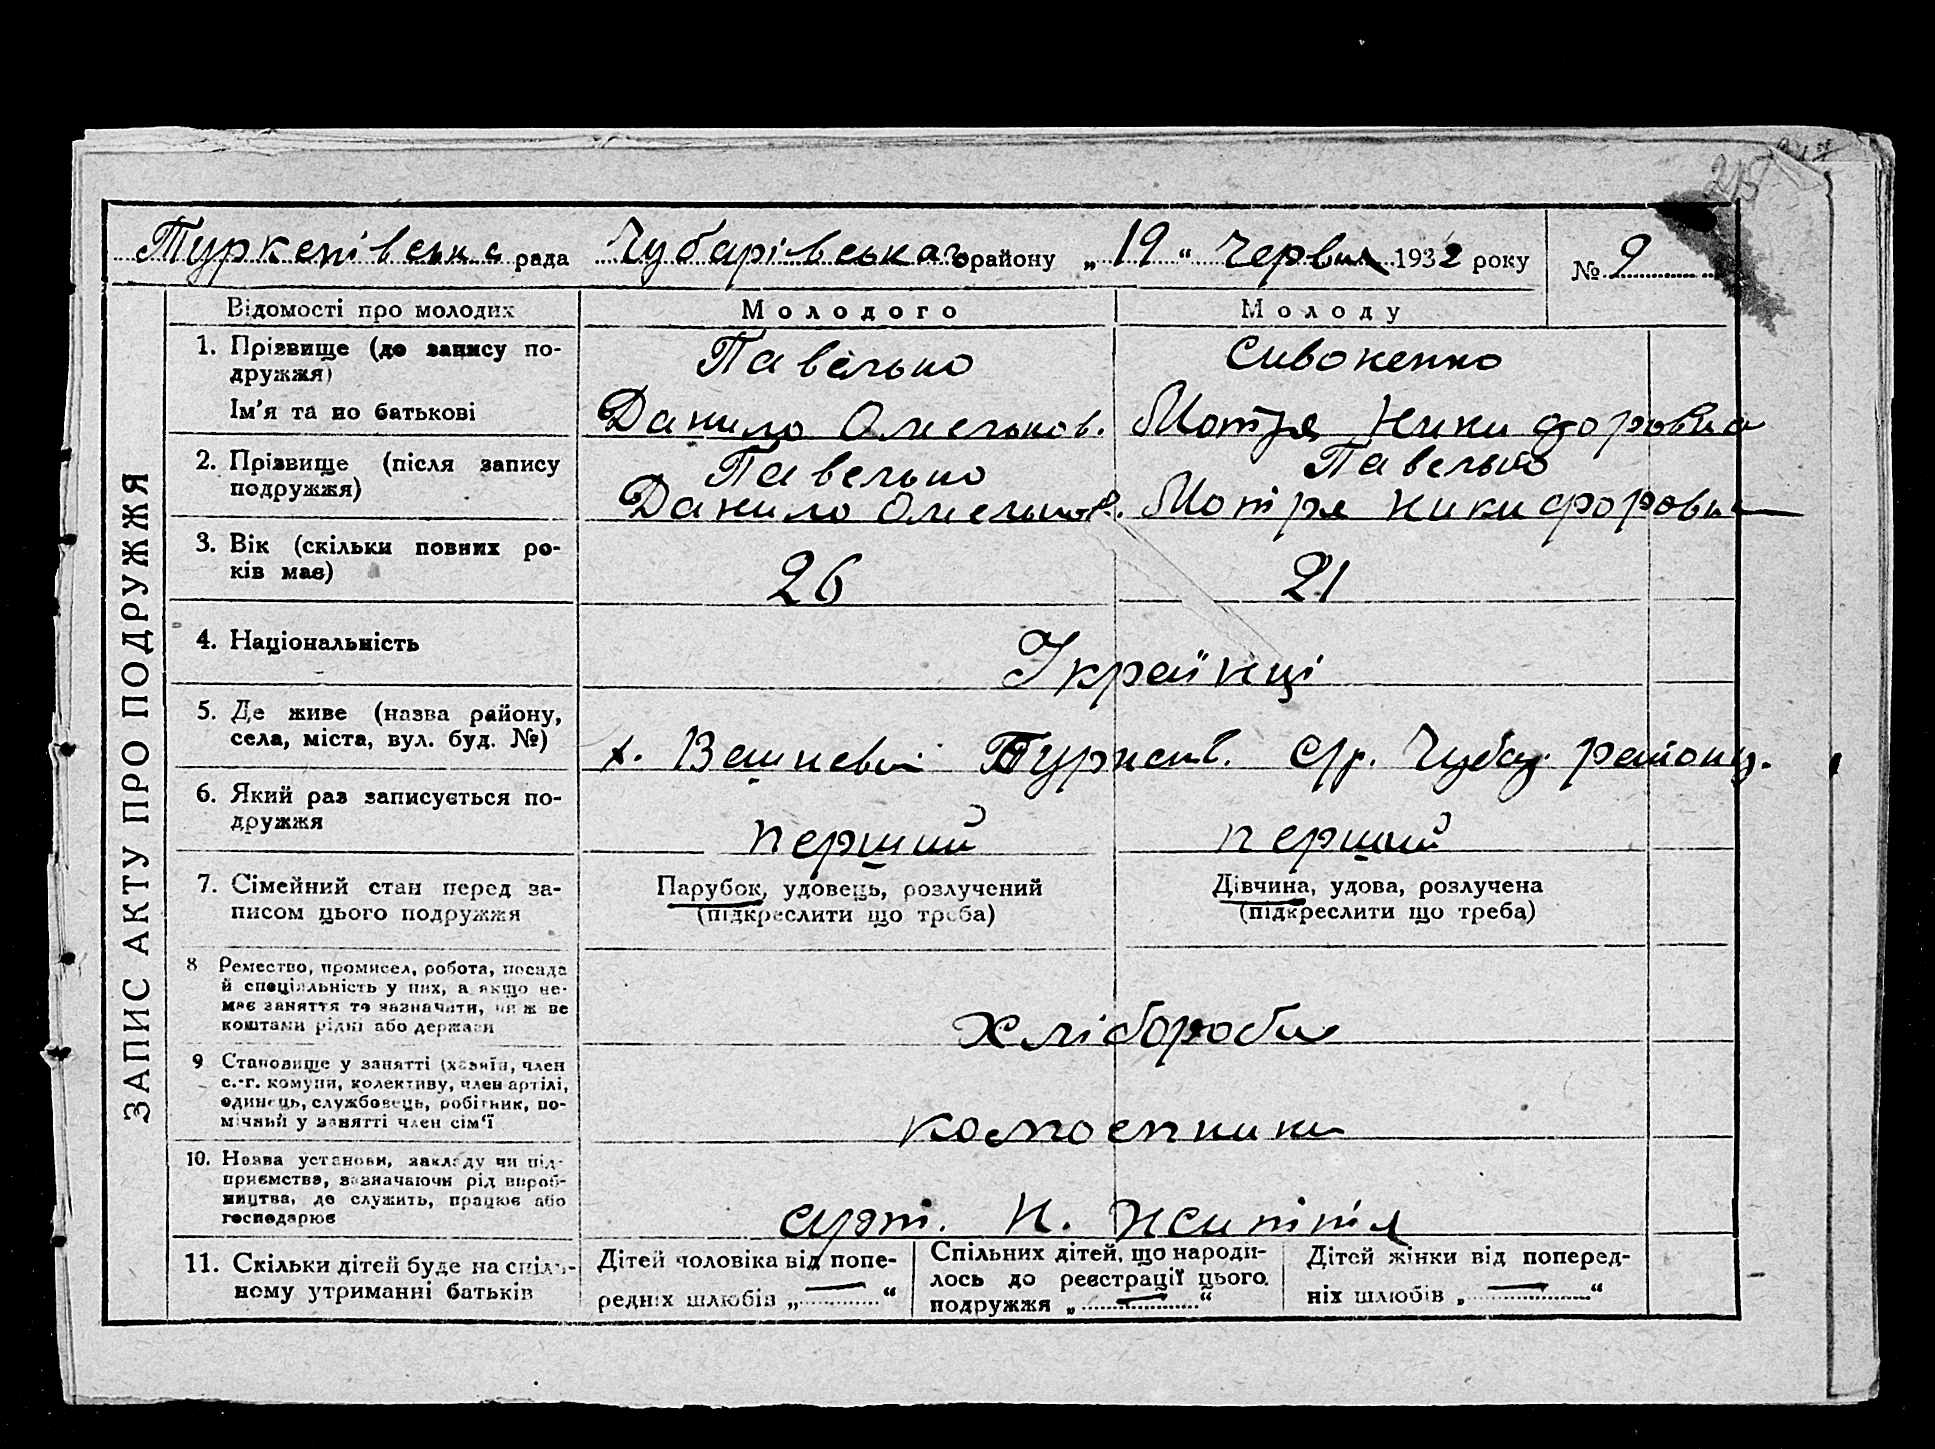 215
Туркенівська рада Чубарівського району „ 19 “ Червня 1932 року № 9
ЗАПИС АКТУ ПРО ПОДРУЖЖЯ
Відомості про молодих
Молодого
Молоду
1. Прізвище (до запису по-
дружжя)
Ім'я та по батькові
Павелько
Данило Омельков.
Сивоненко
Мотря Никифоровна
2. Прізвище (після запису
подружжя)
Павелько
Данило Омельков.
Павелько
Мотря Никифоровна
3. Вік (скільки повних ро-
ків має)
26
21
4. Національність
Українці
5. Де живе (назва району,
села, міста, вул. буд. №)
х. Туркенів. с/р. Чубар. району.
6. Який раз записується по-
дружжя
перший
перший
7. Сімейний стан перед за-
писом цього подружжя
Парубок, удовець, розлучений
(підкреслити що треба)
Дівчина, удова, розлучена
(підкреслити що треба)
8 Ремество, промисел, робота, посада
й спеціяльність у них, а якщо не-
має заняття то зазначити, чиїм же
коштами рідні або держави
хлібороби
9 Становище у занятті (хазяїн, член
с.-г. комуни, колективу, член артілі,
одинець, службовець, робітник, по-
мічний у занятті член сім'ї
колгоспники
10. Назва установи, закладу чи під-
приємства, зазначаючи рід вироб-
ництва, де служить, працює або
господарює
Н. життя
11. Скільки дітей буде на спіль-
ному утриманні батьків
Дітей чоловіка від попе-
редніх шлюбів „ — “
Спільних дітей, що народи-
лось до реєстрації цього
подружжя „ — “
Дітей жінки від поперед-
ніх шлюбів „ — “